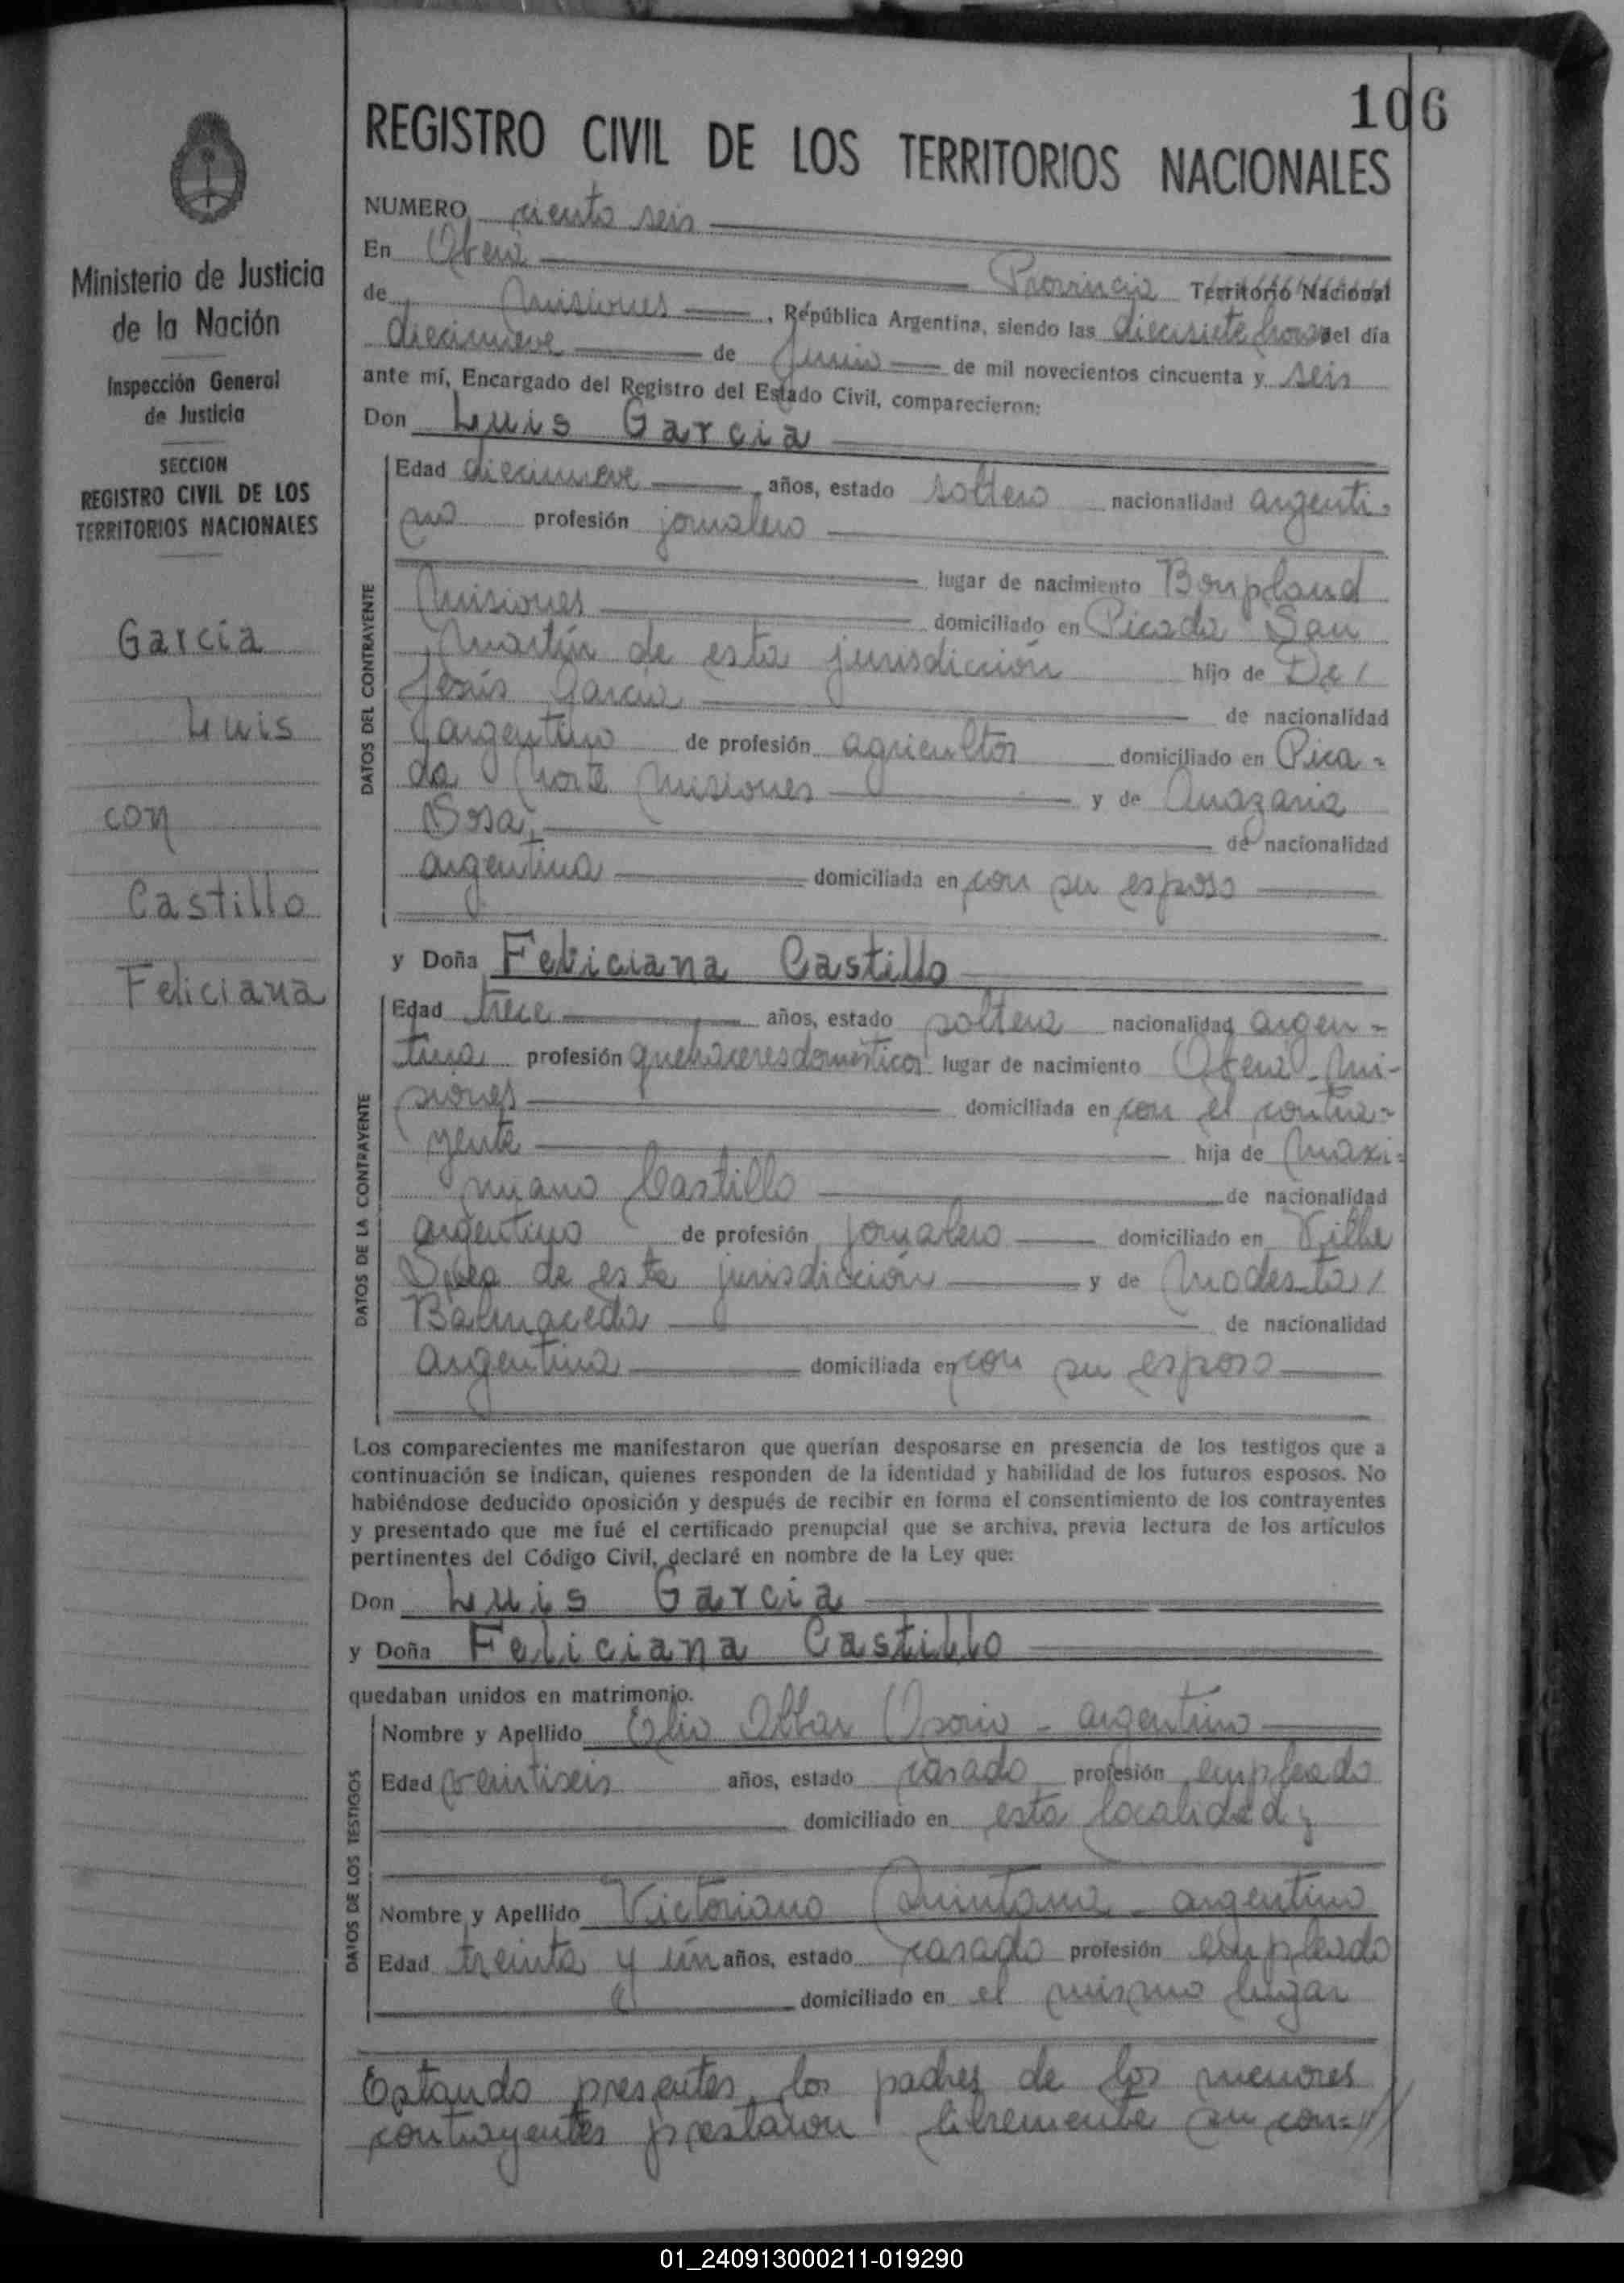 106
REGISTRO CIVIL DE LOS TERRITORIOS NACIONALES
NUMERO ciento seis
En Oberá Provincia Territorio Nacional
de Misiones, República Argentina, siendo las diecisiete horas del día
diecinueve de Junio de mil novecientos cincuenta y seis
ante mí, Encargado del Registro del Estado Civil, comparecieron:
Don Luis Garcia
Edad diecinueve años, estado soltero nacionalidad argenti-
no profesión jornalero
lugar de nacimiento Bonpland
Misiones domiciliado en Picada San
Martín de esta jurisdicción hijo de De/
Jesús Garcia de nacionalidad
argentino de profesión agricultor domiciliado en Pica-
da Norte Misiones y de
Sosa, de nacionalidad
argentina domiciliada en con su esposo
y Doña Feliciana Castillo
Edad trece años, estado soltera nacionalidad argen-
tina profesión quehaceres domésticos lugar de nacimiento Oberá-Mi-
siones domiciliada en con el contra-
yente hija de Maxi-
miano Castillo de nacionalidad
argentino de profesión jornalero domiciliado en Villa
de esta jurisdicción y de Modesta/
Balmaceda de nacionalidad
argentina domiciliada en con su esposo
Los comparecientes me manifestaron que querían desposarse en presencia de los testigos que a
continuación se indican, quienes responden de la identidad y habilidad de los futuros esposos. No
habiéndose deducido oposición y después de recibir en forma el consentimiento de los contrayentes
y presentado que me fué el certificado prenupcial que se archiva, previa lectura de los artículos
pertinentes del Código Civil, declaré en nombre de la Ley que:
Don Luis Garcia
y Doña Feliciana Castillo
quedaban unidos en matrimonio.
Nombre y Apellido Elio Osorio - argentino
Edad veintiseis años, estado casado profesión empleado
domiciliado en esta localidad;
Nombre y Apellido Victoriano Quintana - argentino
Edad treinta y ún años, estado casado profesión empleado
domiciliado en el mismo lugar
Estando presentes los padres de los menores
contrayentes prestaron libremente su con=//
DATOS DEL CONTRAYENTE
DATOS DE LA CONTRAYENTE
DATOS DE LOS TESTIGOS
Ministerio de Justicia
de la Nación
Inspección General
de Justicia
SECCION
REGISTRO CIVIL DE LOS
TERRITORIOS NACIONALES
García
Luis
con
Castillo
Feliciana
01_240913000211-019290